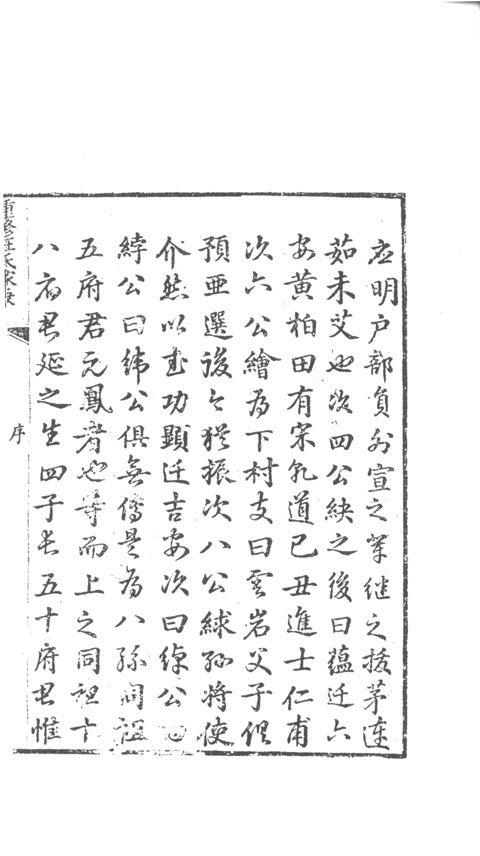 應明户部負外宣之軍继之拔茅連
茹未艾也次四公紻之後曰蘊迁六
安黄柏田有宋乾道已丑進士仁甫
次六公繪为下村支曰雲岩父子俱
預亜選後之猶振次八公絿孙將使
介然以武功顯迁吉安次曰綽公
綍公曰緯公俱無傳是为八孫同祖
五府君元鳳者也等而上之同祖十
八府君延之生四子長五十府君惟
序